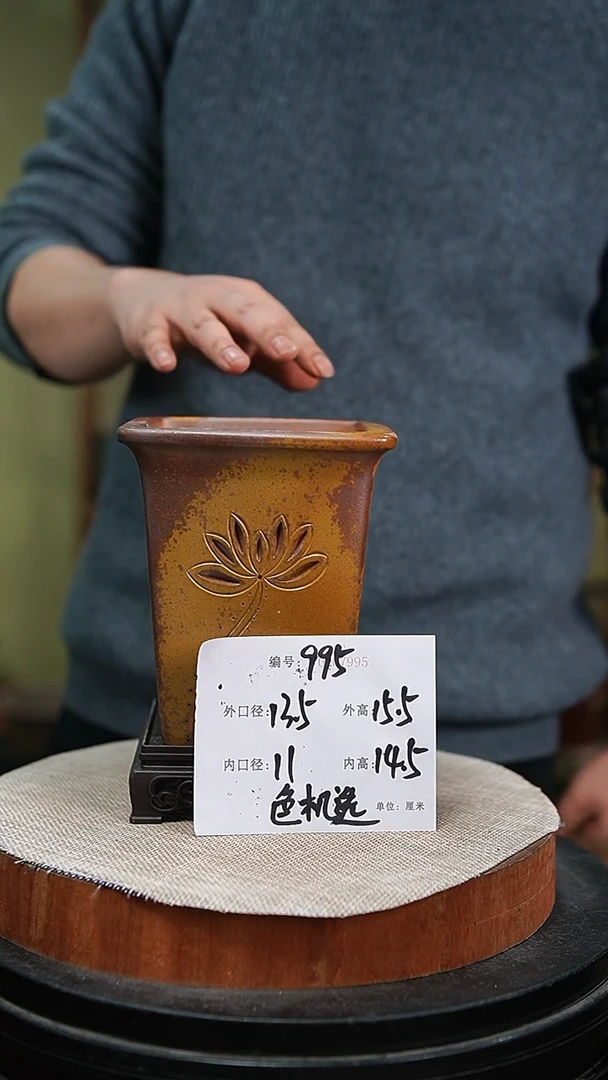 编号:995
外口径:13.5 外高:15.5
内口径:11 内高:14.5
色机选 单位:厘米